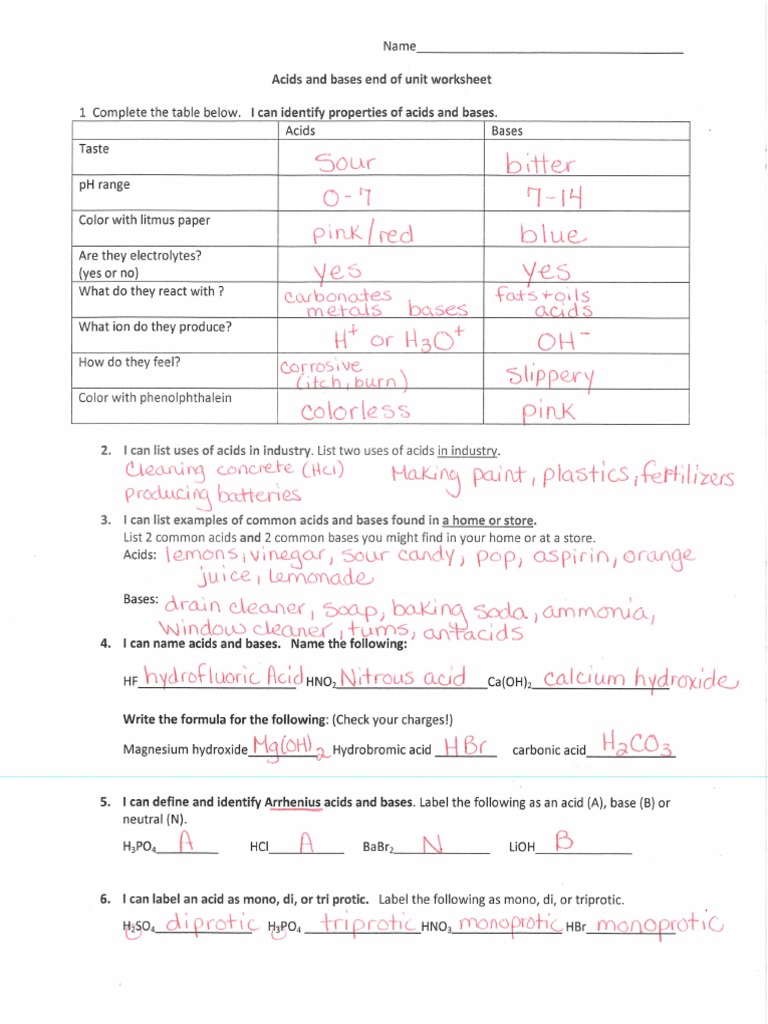 Name
Acids and bases end of unit worksheet
1 Complete the table below. I can identify properties of acids and bases.
Acids Bases
Taste sour bitter
pH range 0-7 7-14
Color with litmus paper pink/red blue
Are they electrolytes?
(yes or no) yes yes
What do they react with ? carbonates fats + oils
metals bases acids
What ion do they produce? H+ or H3O+ OH-
How do they feel? corrosive slippery
(itch, burn)
Color with phenolphthalein colorless pink
2. I can list uses of acids in industry. List two uses of acids in industry.
Cleaning concrete (HCl) Making paint, plastics, fertilizers
producing batteries
3. I can list examples of common acids and bases found in a home or store.
List 2 common acids and 2 common bases you might find in your home or at a store.
Acids: lemons, vinegar, sour candy, pop, aspirin, orange
juice, lemonade
Bases: drain cleaner, soap, baking soda, ammonia,
window cleaner, tums, antacids
4. I can name acids and bases. Name the following:
HF hydrofluoric Acid HNO2 Nitrous acid Ca(OH)2 calcium hydroxide
Write the formula for the following: (Check your charges!)
Magnesium hydroxide Mg(OH)2 Hydrobromic acid HBr carbonic acid H2CO3
5. I can define and identify Arrhenius acids and bases. Label the following as an acid (A), base (B) or
neutral (N).
H3PO4 A HCl A BaBr2 N LiOH B
6. I can label an acid as mono, di, or tri protic. Label the following as mono, di, or triprotic.
H2SO4 diprotic H3PO4 triprotic HNO3 monoprotic HBr monoprotic